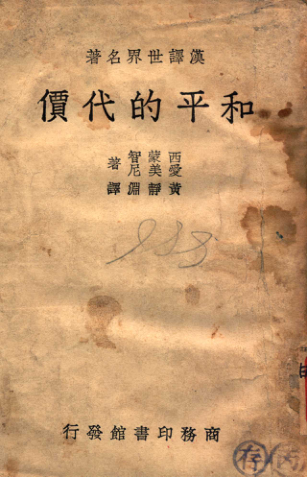 漢譯世界名著
和平的代價
西蒙智
愛美尼
著
黃靜淵譯
商務印書館發行
存